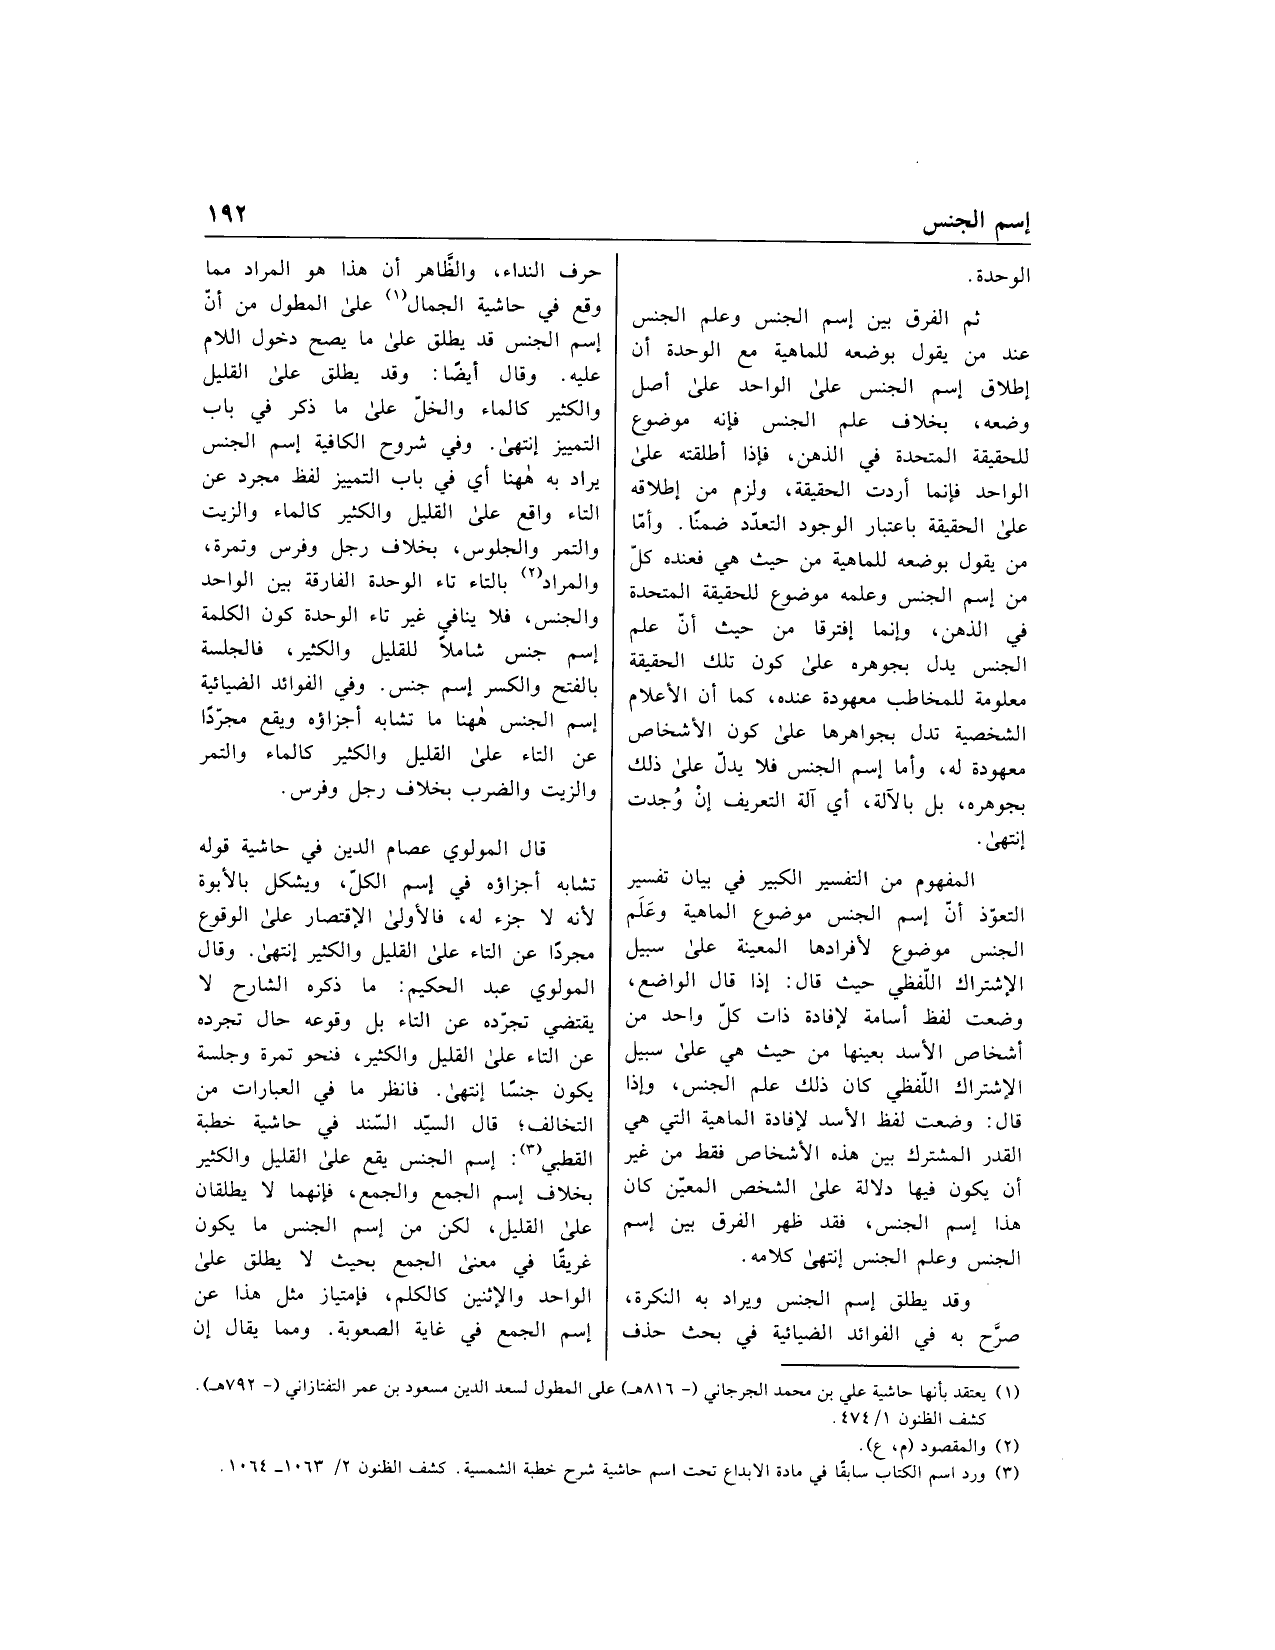 إسم الجنس
١٩٢
الوحدة.
ثم الفرق بين إسم الجنس وعلم الجنس
عند من يقول بوضعه للماهية مع الوحدة أن
إطلاق إسم الجنس على الواحد على أصل
وضعه، بخلاف علم الجنس فإنه موضوع
للحقيقة المتحدة في الذهن، فإذا أطلقته على
الواحد فإنما أردت الحقيقة، ولزم من إطلاقه
على الحقيقة باعتبار الوجود التعدّد ضمنًا. وأمّا
من يقول بوضعه للماهية من حيث هي فعنده كلّ
من إسم الجنس وعلمه موضوع للحقيقة المتحدة
في الذهن، وإنما إفترقا من حيث أنّ علم
الجنس يدل بجوهره على كون تلك الحقيقة
معلومة للمخاطب معهودة عنده، كما أن الأعلام
الشخصية تدل بجواهرها على كون الأشخاص
معهودة له، وأما إسم الجنس فلا يدلّ على ذلك
بجوهره، بل بالآلة، أي آلة التعريف إنْ وُجدت
إنتهىٰ.
المفهوم من التفسير الكبير في بيان تفسير
التعوّذ أنّ إسم الجنس موضوع الماهية وعَلَم
الجنس موضوع لأفرادها المعينة على سبيل
الإشتراك اللّفظي حيث قال: إذا قال الواضع،
وضعت لفظ أسامة لإفادة ذات كلّ واحد من
أشخاص الأسد بعينها من حيث هي على سبيل
الإشتراك اللّفظي كان ذلك علم الجنس، وإذا
قال: وضعت لفظ الأسد لإفادة الماهية التي هي
القدر المشترك بين هذه الأشخاص فقط من غير
أن يكون فيها دلالة على الشخص المعيّن كان
هذا إسم الجنس، فقد ظهر الفرق بين إسم
الجنس وعلم الجنس إنتهىٰ كلامه.
وقد يطلق إسم الجنس ويراد به النكرة،
صرَّح به في الفوائد الضيائية في بحث حذف
حرف النداء، والظَّاهر أن هذا هو المراد مما
وقع في حاشية الجمال(١) على المطول من أنّ
إسم الجنس قد يطلق على ما يصح دخول اللام
عليه. وقال أيضًا: وقد يطلق على القليل
والكثير كالماء والخلّ على ما ذكر في باب
التمييز إنتهىٰ. وفي شروح الكافية إسم الجنس
يراد به هٰهنا أي في باب التمييز لفظ مجرد عن
التاء واقع على القليل والكثير كالماء والزيت
والتمر والجلوس، بخلاف رجل وفرس وتمرة،
والمراد(٢) بالتاء تاء الوحدة الفارقة بين الواحد
والجنس، فلا ينافي غير تاء الوحدة كون الكلمة
إسم جنس شاملاً للقليل والكثير، فالجلسة
بالفتح والكسر إسم جنس. وفي الفوائد الضيائية
إسم الجنس هٰهنا ما تشابه أجزاؤه ويقع مجرّدًا
عن التاء على القليل والكثير كالماء والتمر
والزيت والضرب بخلاف رجل وفرس.
قال المولوي عصام الدين في حاشية قوله
تشابه أجزاؤه في إسم الكلّ، ويشكل بالأبوة
لأنه لا جزء له، فالأولىٰ الإقتصار على الوقوع
مجردًا عن التاء على القليل والكثير إنتهىٰ. وقال
المولوي عبد الحكيم: ما ذكره الشارح لا
يقتضي تجرّده عن التاء بل وقوعه حال تجرده
عن التاء على القليل والكثير، فنحو تمرة وجلسة
يكون جنسًا إنتهىٰ. فانظر ما في العبارات من
التخالف؛ قال السيّد السّند في حاشية خطبة
القطبي(٣): إسم الجنس يقع على القليل والكثير
بخلاف إسم الجمع والجمع، فإنهما لا يطلقان
على القليل، لكن من إسم الجنس ما يكون
غريقًا في معنىٰ الجمع بحيث لا يطلق على
الواحد والإثنين كالكلم، فإمتياز مثل هذا عن
إسم الجمع في غاية الصعوبة. ومما يقال إن
(١) يعتقد بأنها حاشية علي بن محمد الجرجاني (- ٨١٦هـ) على المطول لسعد الدين مسعود بن عمر التفتازاني (- ٧٩٢هـ).
كشف الظنون ١/ ٤٧٤.
(٢) والمقصود (م، ع).
(٣) ورد اسم الكتاب سابقًا في مادة الابداع تحت اسم حاشية شرح خطبة الشمسية. كشف الظنون ٢/ ١٠٦٣- ١٠٦٤.